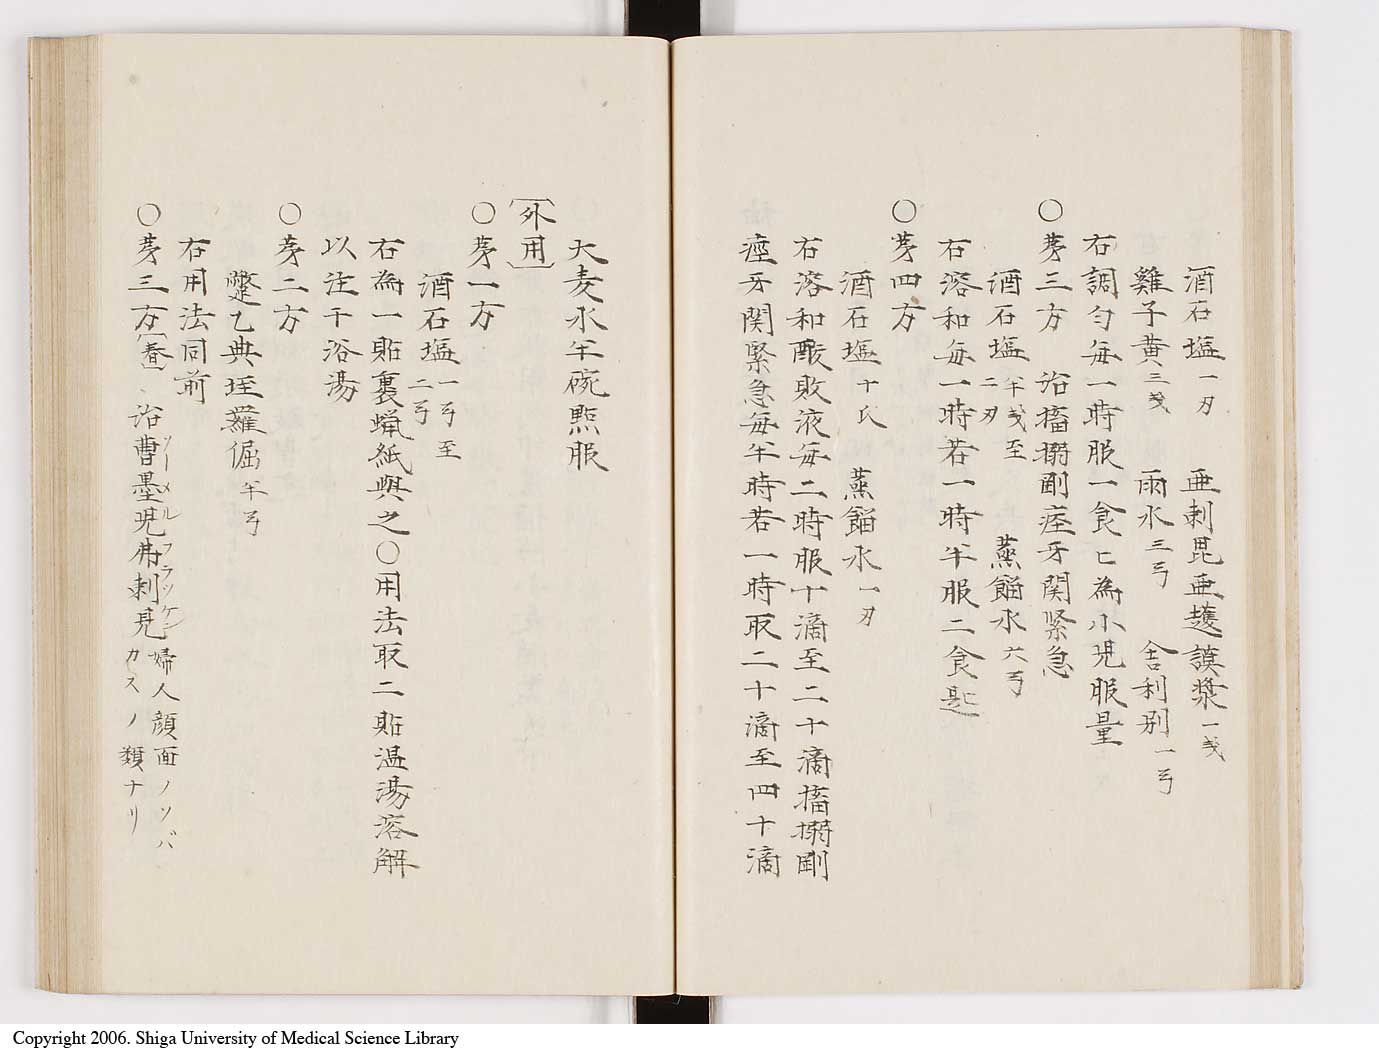 酒石塩一刃 亜剌毘亜護謨漿一戔
雞子黄三戔 雨水三弓 舎利別一弓
右調匀毎一時服一食匕為小児服量
○茅三方 治搐搦剛痙牙関緊急
酒石塩半戔至二刃 蒸餾水六弓
右溶和毎一時若一時半服二食匙
○茅四方
酒石塩十氏 蒸餾水一刃
右溶和酸敗液毎二時服十滴至二十滴搐搦剛
痙牙関緊急毎半時若一時取二十滴至四十滴
大麦水半碗點服
〔外用〕
○茅一方
酒石塩一弓至二弓
右為一貼裏蝋紙與之○用法取二貼温湯溶解
以注于浴湯
○茅二方
蹩乙典垤羅倔半弓
右用法同前
○茅三方〔春〕、治曹墨児弗剌見婦人顔面ノソバカスノ類ナリ
ソーメルフラッケン
Copyright 2006. Shiga University of Medical Science Library